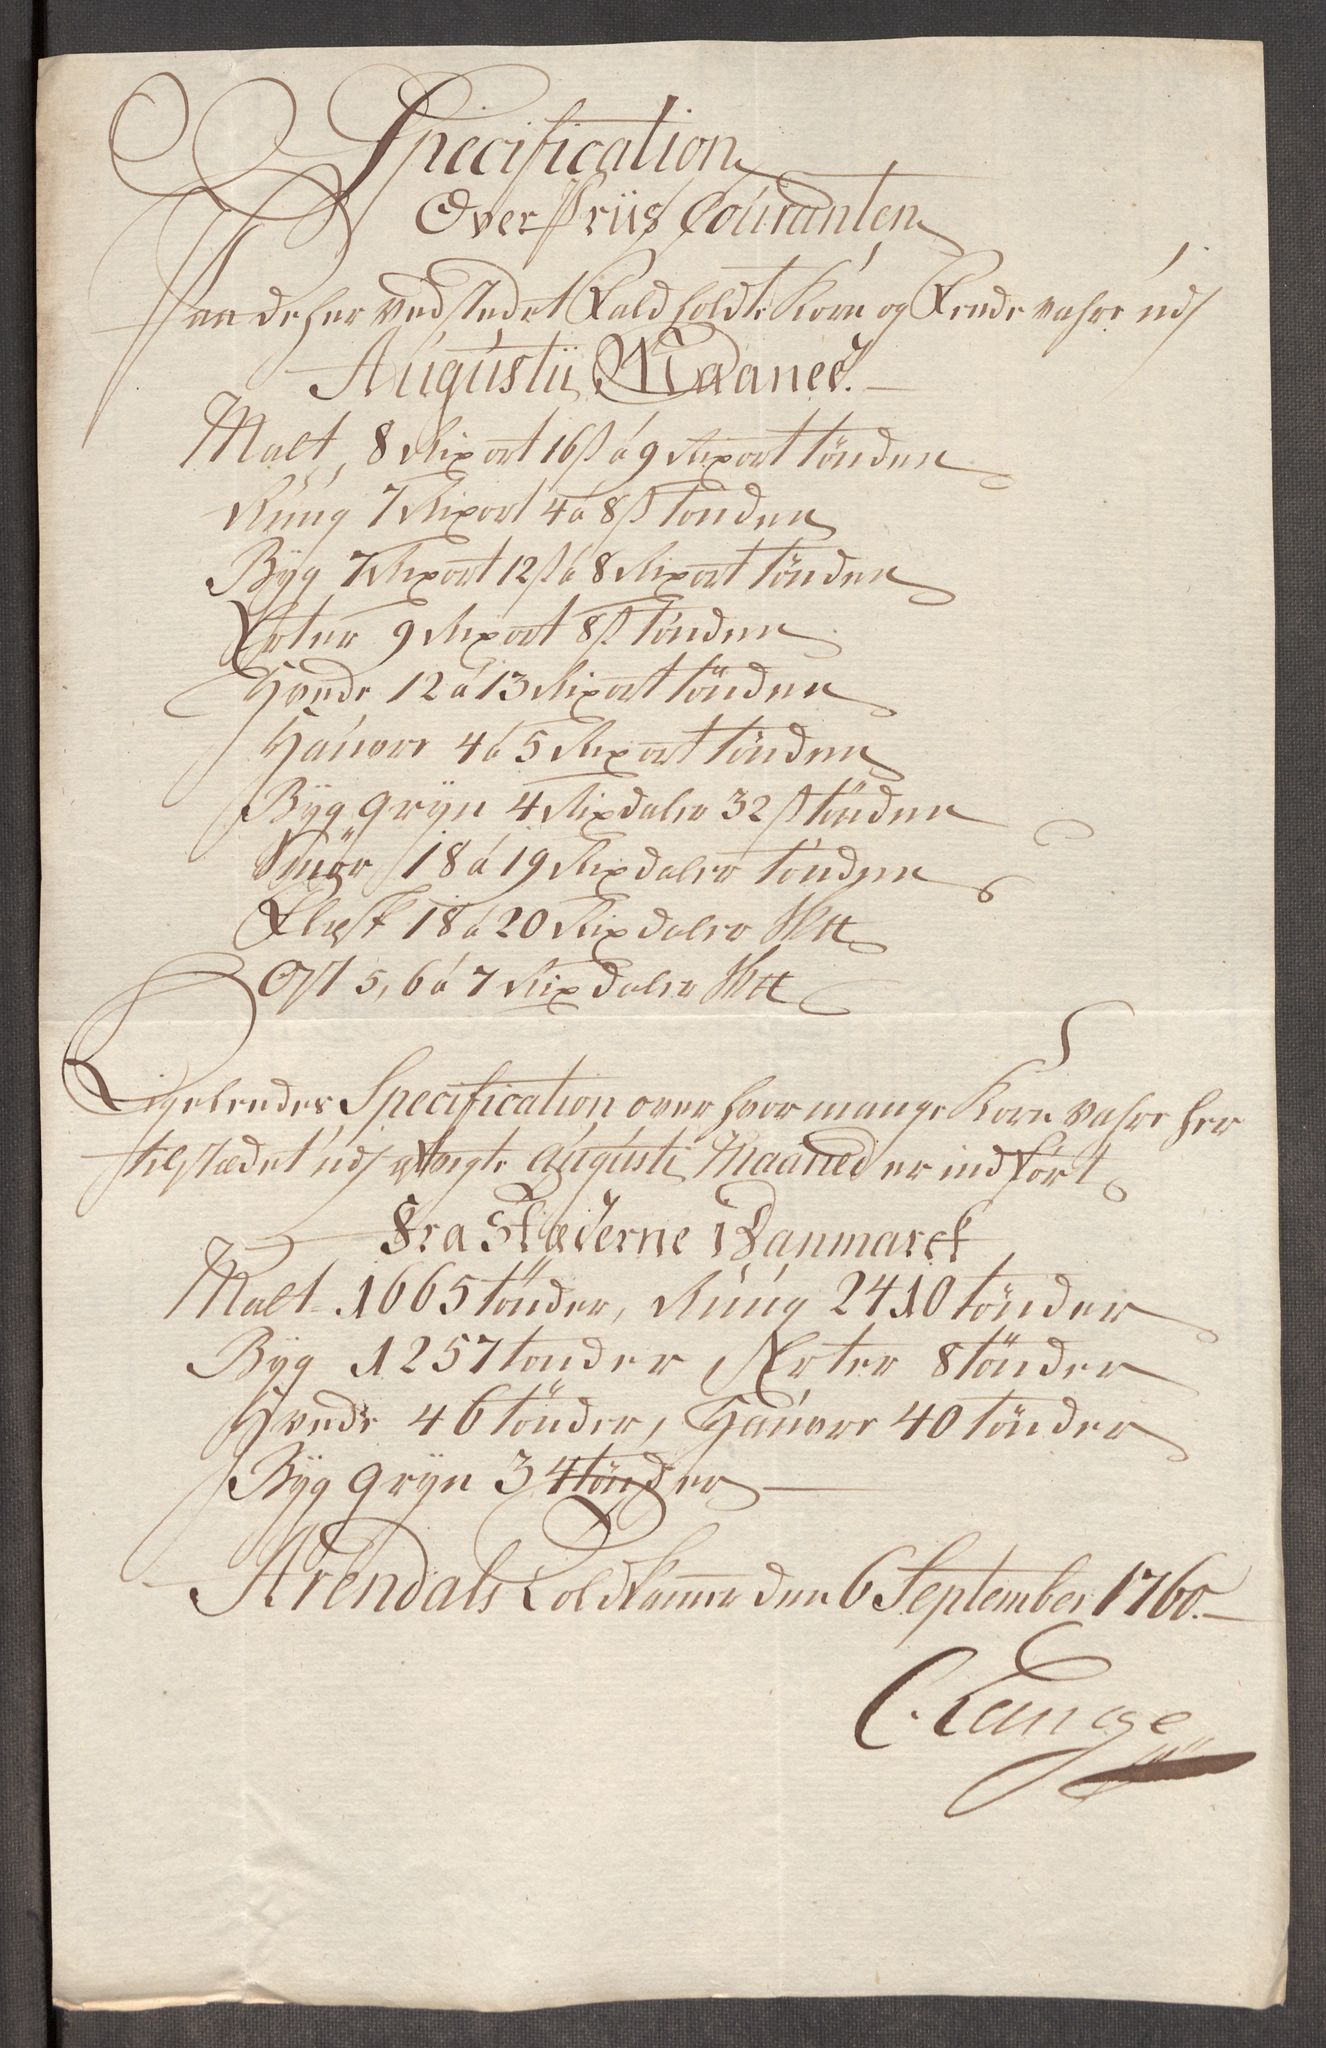 Specification
Over Priis Couranten
Paa de her ved stedet Fald holdte Korn og Fende vahre udj
Augustii Maaned.
Malt, 8 Rixort 16 s á 9 Rixort tönden
Rúug 7 Rixort 4 á 8 s tönden
Byg 7 Rixort 12 s á 8 Rixort tönden
Erter 9 Rixort 8 s tönden
Hvede 12 á 13 Rixort tönden
Haúvre 4 á 5 Rixort tönden
Byg gryn 4 Rixdaler 32 s tönden
Smör 18 á 19 Rixdaler tönden
Flesk 18 á 20 Rixdaler
Ost 5, 6 á 7 Rixdaler
Ligeleedes Specification over hvor mange Korn vahre her
til stædet udj Augusti Maaned er ind fört
Fra Stæderne i Danmarck
Malt 1665 tönder, Rúug 2410 tönder
Byg 1257 tönder, Erter 8 tönder
Hvede 46 tönder, Haúvre 40 tönder
Byg gryn 34 tönder
Arendals Toldkamer den 6 September 1760.
C. Lange